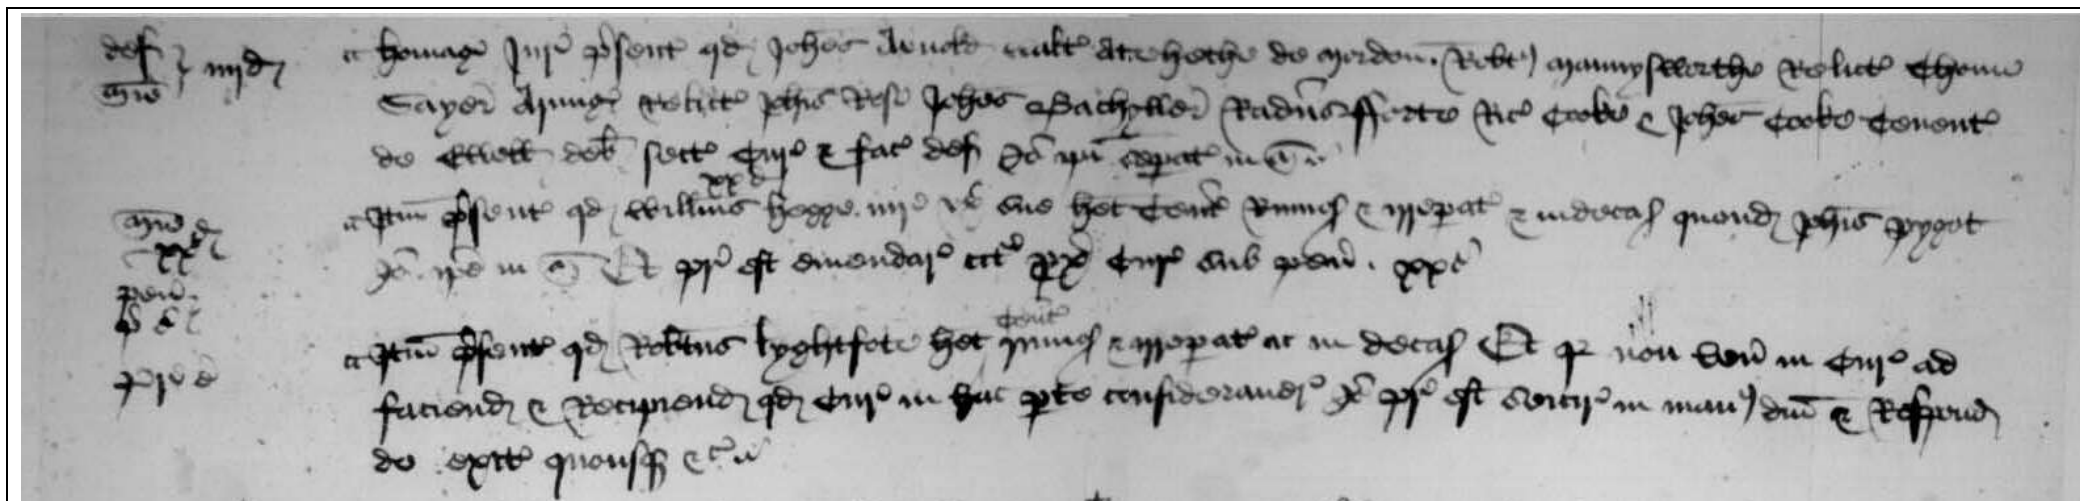 def
Mia } iiijd
homag' Jur' p'sent' qd Joh'es Arnold Walt' Atte hethe de Mordon. Rob't' Mannysworthe Relict' Thome
Sayer' Relict' Joh'is Rose Joh'es Bachyller' Rad'us fforte Ric' Cooke & Joh'es Cooke Tenent'
de Ewell deb' sect' Cur' & fac' def' Jo' ip'i in mia
mia xxd
It'm p'sent' qd Will'ms hogge het Ten't' Ruinos' & irrep'at' & in decas' quond' Joh'is Pygot
Jo' ip'e in mia Et pr' est emendar' cit' px' Cur' sub pena. xx
pena
It'm p'sent' qd Rob'tus lyghtfote het Tent' ruinos' & irrep'at' ac in decas' Et q' non ven' in Cur' ad
prec'
faciend' & Recipiend' qd Cur' in hac p'te consideraver' Jo' pr' est seis'ir' in man' d'ni & Respond'
de exit' quousq' &c'